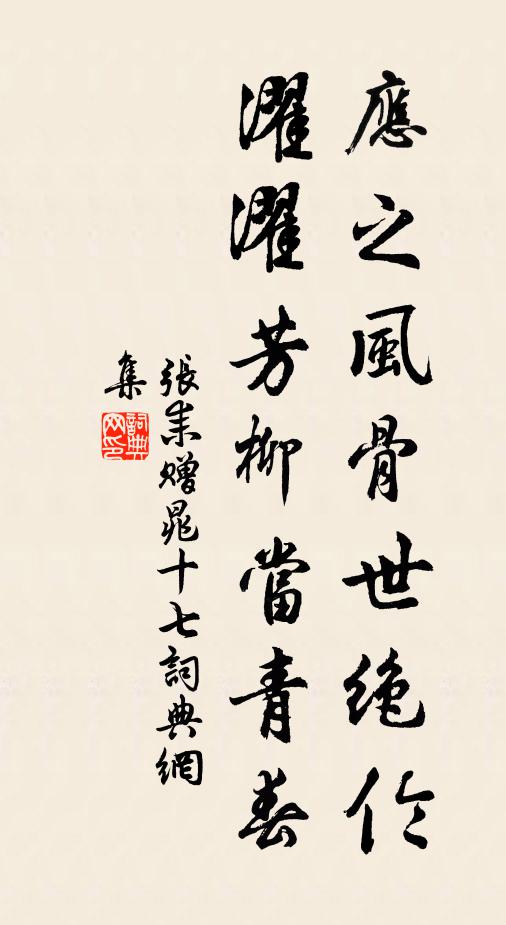 應之風骨世絶伦
濯濯芳柳當青春
張耒贈晁十七詞典網
集
詞典
网印